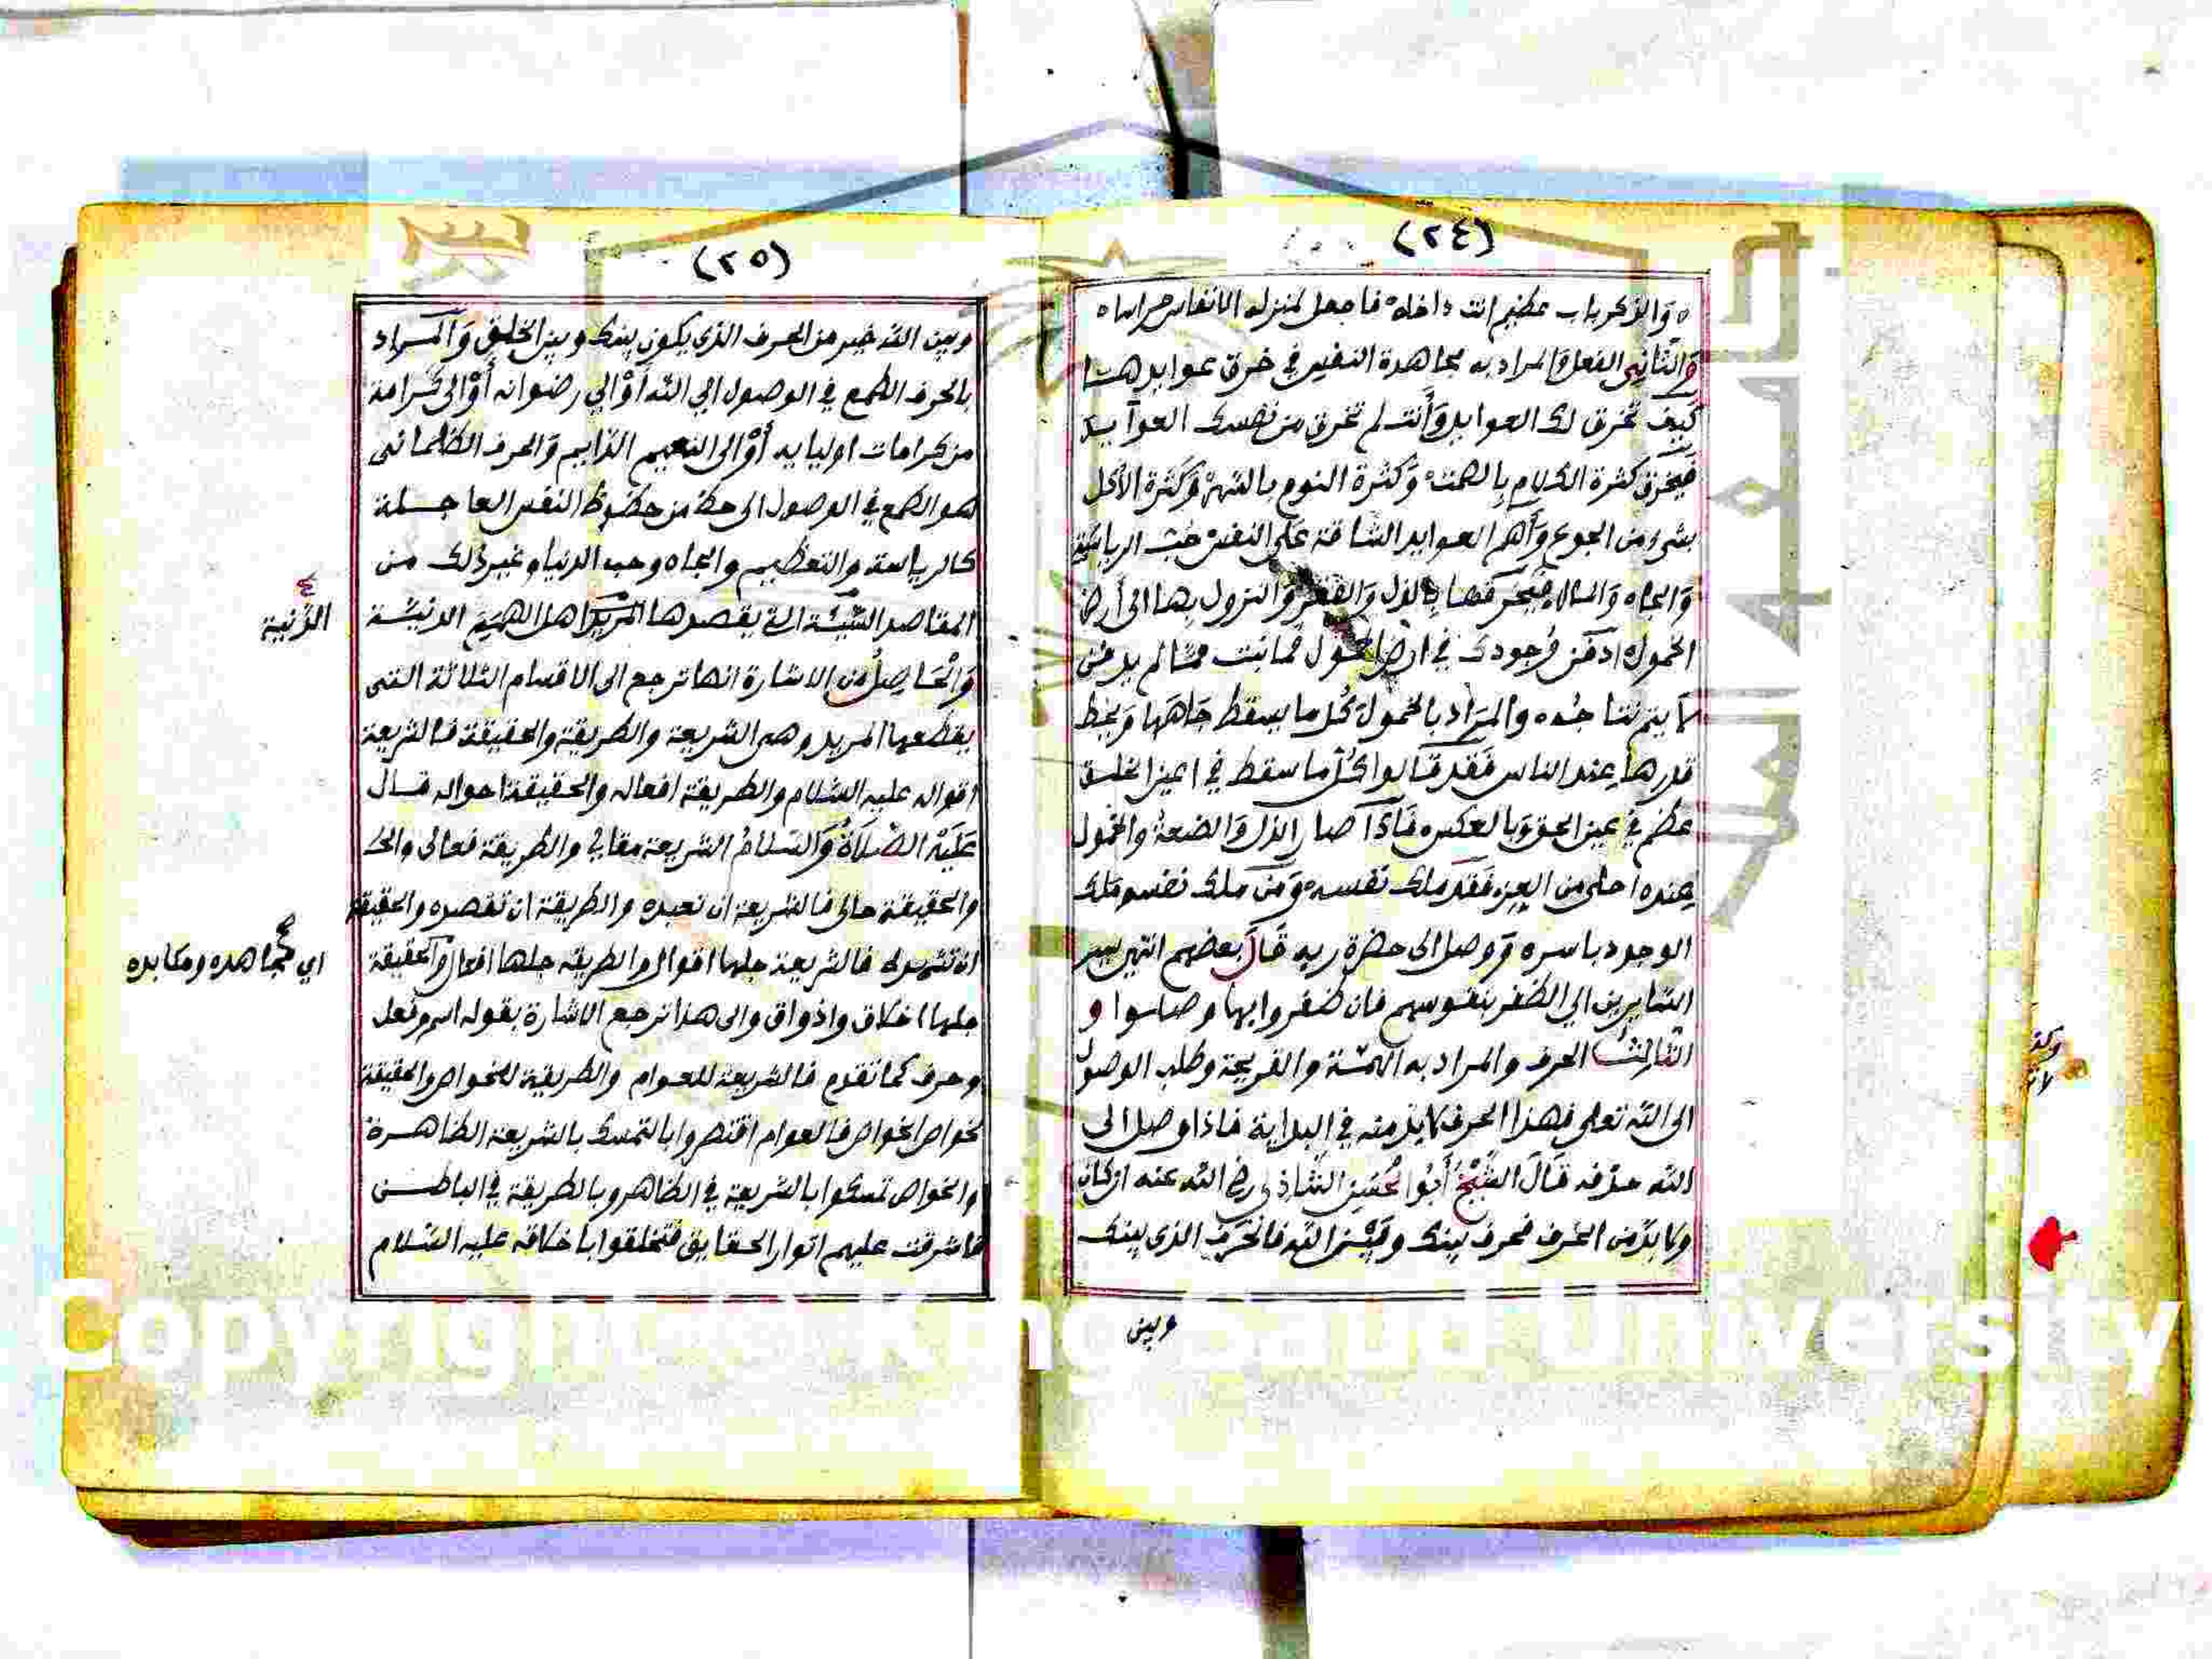 (٢٤)
ه والذكر باب عظيم انت داخله فاجعل لمنزله الانفاس حراسا ه
والثاني الفعل والمراد به مجاهدة النفس في خرق عوايدها
كيف تخرق لك العوايد وأنت لم تخرق من نفسك العوآيد
فيخرق كثرة الكلام بالصمت وكثرة النوم بالسهر وكثرة الأكل
بشيء من الجوع وأهم العوايد الشاقة على النفس حب الرياسة
والجاه والمال فيخرقها بالذل والفقر والنزول بها الى أرض
الخمول ادفن وجودك في ارض الخمول فما نبت مما لم يدفن
لا يتم نتاجه والمراد بالخمول كل ما يسقط جاهها ويحط
قدرها عند الناس فقد قالوا كل ما سقط في اعين الخلق
عظم في عين الحق وبالعكس فاذا صار الذل والضعة والخمول
عنده احلى من العز فقد ملك نفسه ومن ملك نفسه ملك
الوجود باسره ووصل الى حضرة ربه قال بعضهم انتهى سير
السايرين الي الظفر بنفوسهم فان ظفروا بها وصلوا و
الثالث الحرف والمراد به الهمة والقريحة وطلب الوصول
الى الله تعلى فهذا الحرف لابد منه في البداية فاذا وصل الى
الله حذفه قال الشيخ أبوا الحسن الشاذلي رضي الله عنه ان كان
ولا بد من الحرف فحرف بينك وبين الله فالحرف الذي بينك
وبين
(٢٥)
وبين الله خير من الحرف الذي يكون بينك وبين الخلق والمراد
بالحرف الطمع في الوصول الي الله أو الي رضوانه أو الى كرامة
من كرامات اوليايه أو الى النعيم الدايم والحرف الظلماني
هو الطمع في الوصول الى حظ من حظوظ النفس العاجلة
كالرياسة والتعظيم والجاه وحب الدنيا وغير ذلك من
المقاصد التي يقصدها المريد اهل الهمم الدنيئة
الدنية
والحاصل من الاشارة انها ترجع الى الاقسام الثلاثة التي
يقطعها المريد وهي الشريعة والطريقة والحقيقة فالشريعة
اقواله عليه السلام والطريقة افعاله والحقيقة احواله قال
عليه الصلاة والسلام الشريعة مقالي والطريقة فعالي والح
والحقيقة حالي فالشريعة ان تعبده والطريقة ان تقصده والحقيقة
ان تشهده فالشريعة جلها اقوال والطريقة جلها افعال والحقيقة
اي مجاهده ومكابده
جلها اخلاق واذواق والى هذا ترجع الاشارة بقوله اسم وفعل
وحرف كما تقدم فالشريعة للعوام والطريقة للخواص والحقيقة
لخواص الخواص فالعوام اقتصروا بالتمسك بالشريعة الظاهرة
والخواص تمسكوا بالشريعة في الظاهر وبالطريقة في الباطن
فاشرقت عليهم انوار الحقايق فتخلقوا باخلاقه عليه السلام
Copyright © King Saud University